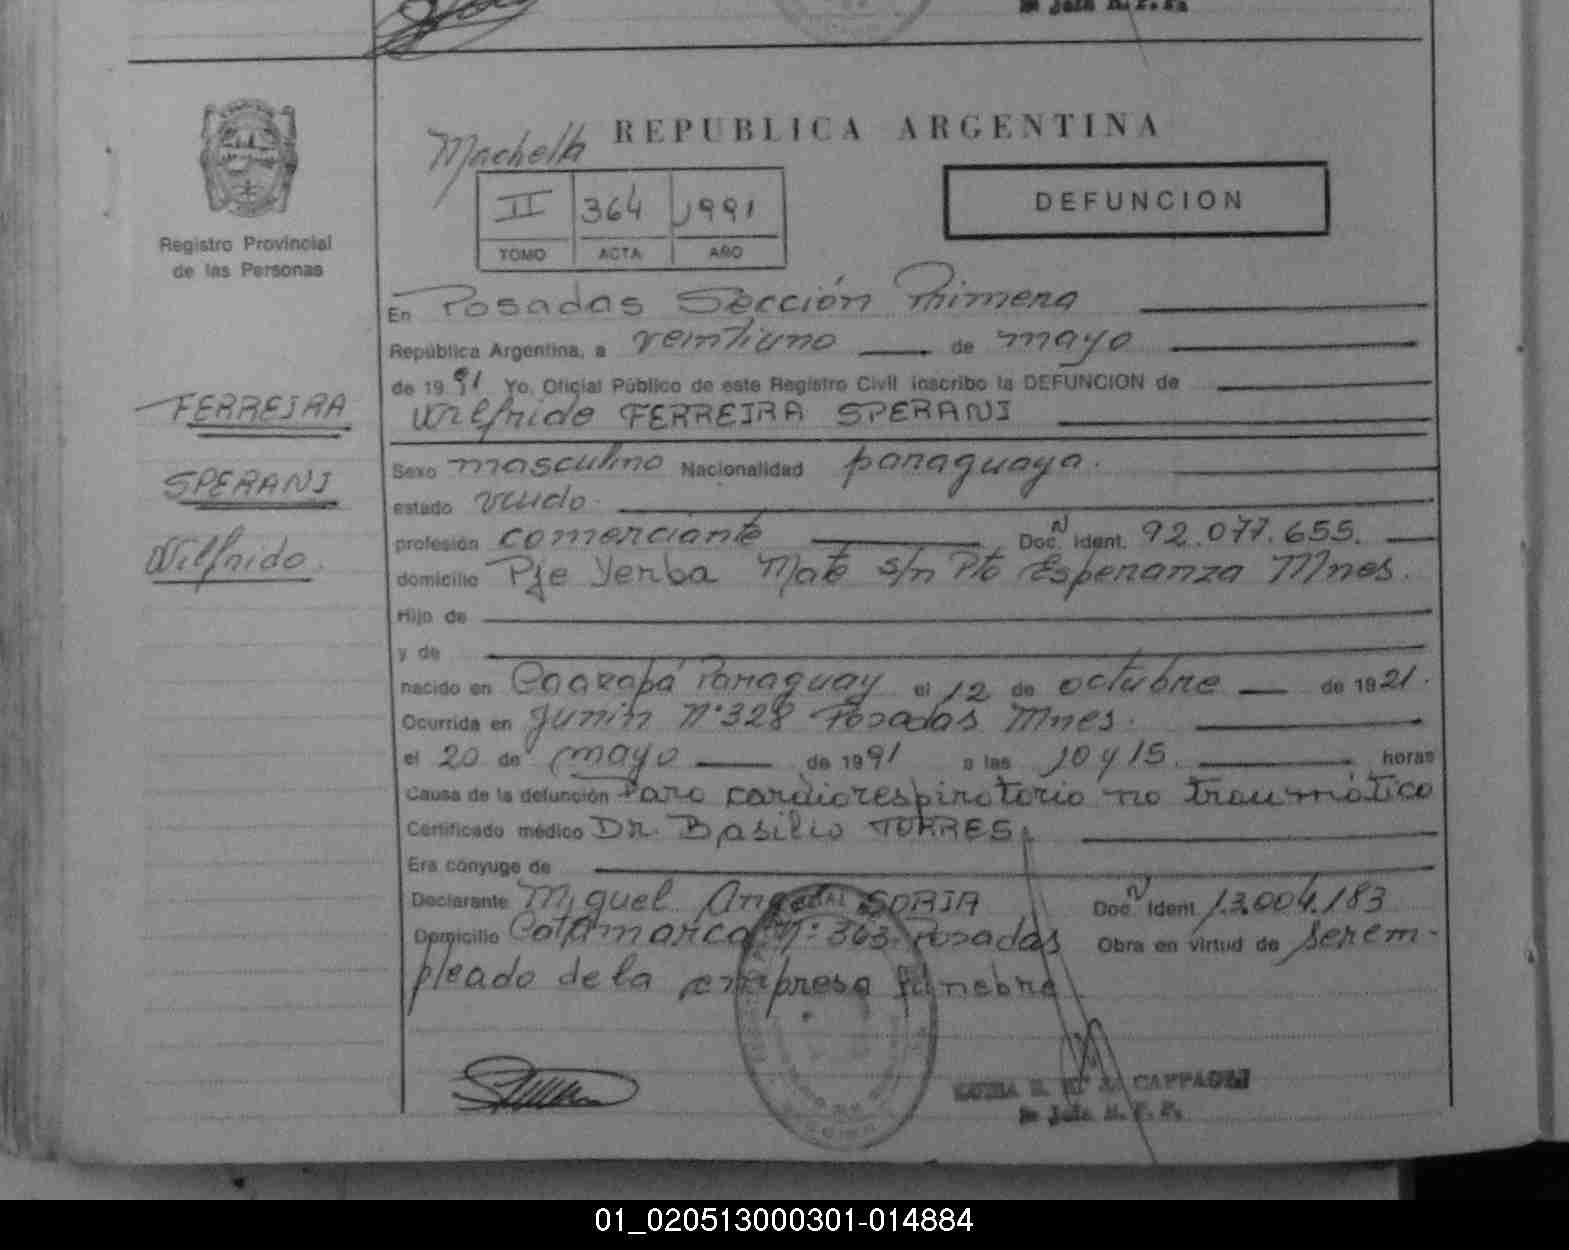 Jefe R.P.P.
REPUBLICA ARGENTINA
DEFUNCION
II 364 1991
TOMO ACTA AÑO
Registro Provincial
de las Personas
En Posadas Sección Primera
República Argentina, a veintiuno de mayo
de 1991 Yo, Oficial Público de este Registro Civil inscribo la DEFUNCION de
Wilfrido FERREIRA SPERANI
FERREIRA
SPERANI
Wilfrido.
Sexo masculino Nacionalidad paraguaya.
estado viudo.
profesión comerciante Doc. N Ident. 92.077.655.
domicilio Pje Yerba Mate s/n Pto Esperanza Mnes.
Hijo de
y de
nacido en Caazapá Paraguay el 12 de octubre de 1921.
Ocurrida en Junin N° 328 Posadas Mnes.
el 20 de mayo de 1991 a las 10 y 15. horas
Causa de la defunción Paro cardiorespiratorio no traumático
Certificado médico Dr. Basilio TORRES.
Era cónyuge de
Declarante Miguel Angel SORIA Doc. N Ident. 13.004.183
Domicilio Catamarca N° 363 Posadas Obra en virtud de ser em-
pleado de la empresa fúnebre
CAPPAGLI
01_020513000301-014884